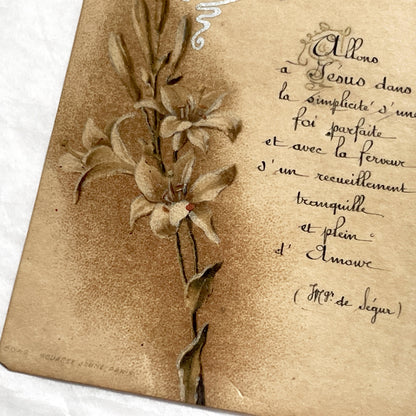 Allons
à Jésus dans
la simplicité d'une
foi parfaite
et avec la ferveur
d'un recueillement
tranquille
et plein
d'Amour
(Mgr de Ségur)
BOUASSE JEUNE PARIS